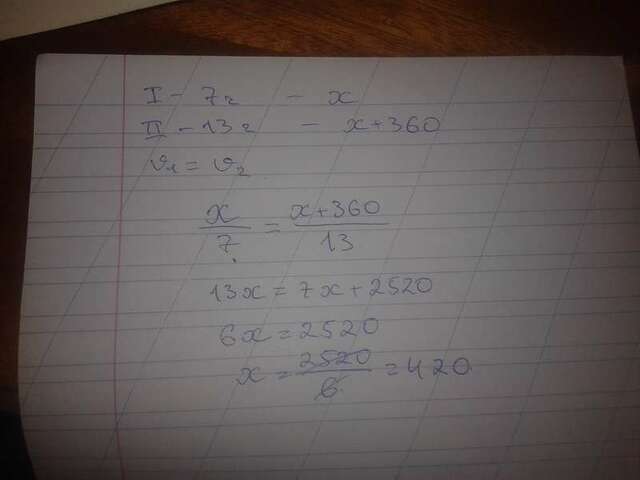 I - 7г - x
II - 13г - x+360
v₁ = v₂
x/7 = x+360/13
13x = 7x + 2520
6x = 2520
x = 2520/6 = 420